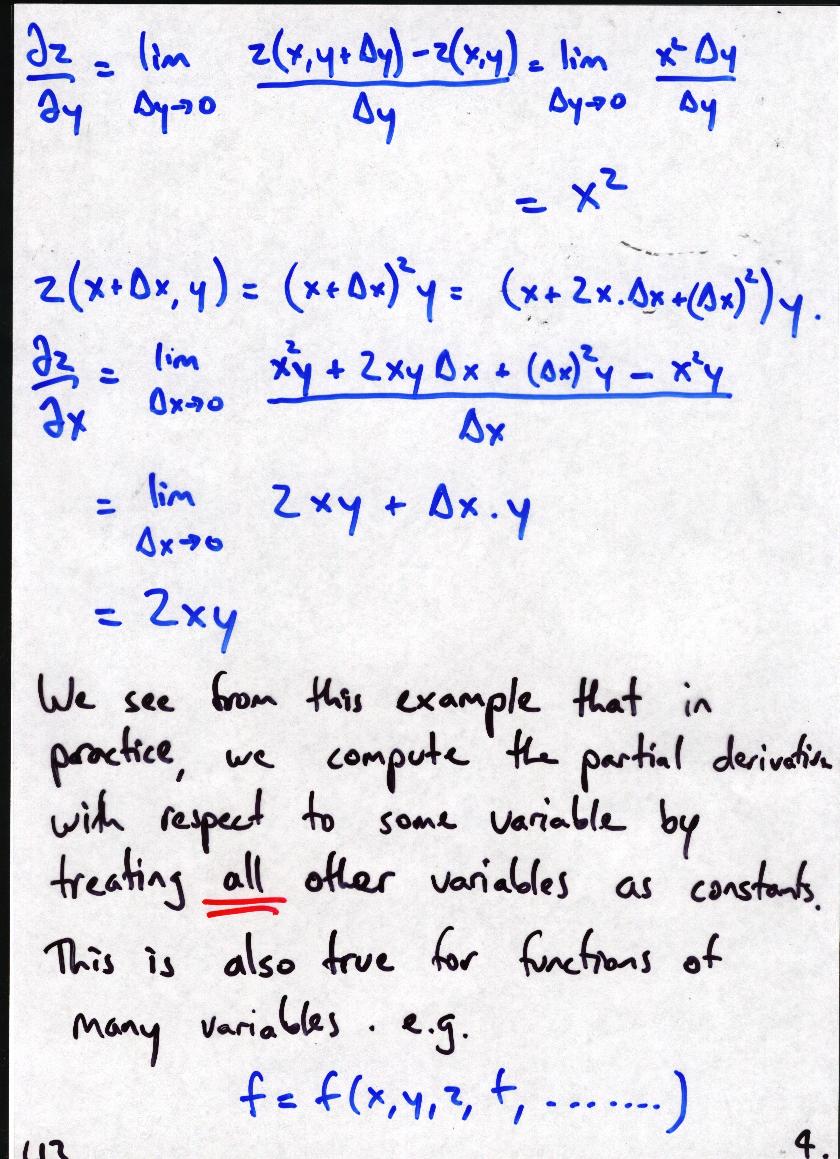 ∂z/∂y = lim Δy→0 (z(x,y+Δy) - z(x,y))/Δy = lim Δy→0 x² Δy/Δy
= x²
z(x+Δx, y) = (x+Δx)²y = (x + 2x.Δx+(Δx)²)y.
∂z/∂x = lim Δx→0 (x²y + 2xy Δx + (Δx)²y - x²y)/Δx
= lim Δx→0 2xy + Δx.y
= 2xy
We see from this example that in
practice, we compute the partial derivative
with respect to some variable by
treating all other variables as constants.
This is also true for functions of
many variables. e.g.
f = f(x,y,z, t, ........)
4.